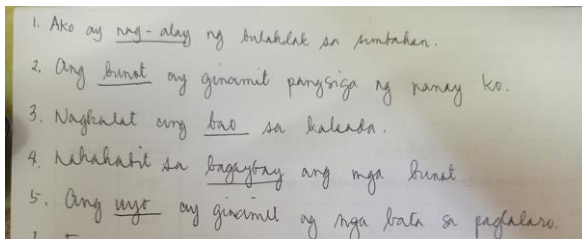 1. Ako ay nag-alay ng bulaklak sa simbahan.
2. Ang bunot ay ginamit pangsiga ng nanay ko.
3. Nagkalat ang bao sa kalsada.
4. Nakakabit sa bagaybay ang mga bunot.
5. Ang uyo ay ginamit ng mga bata sa paglalaro.